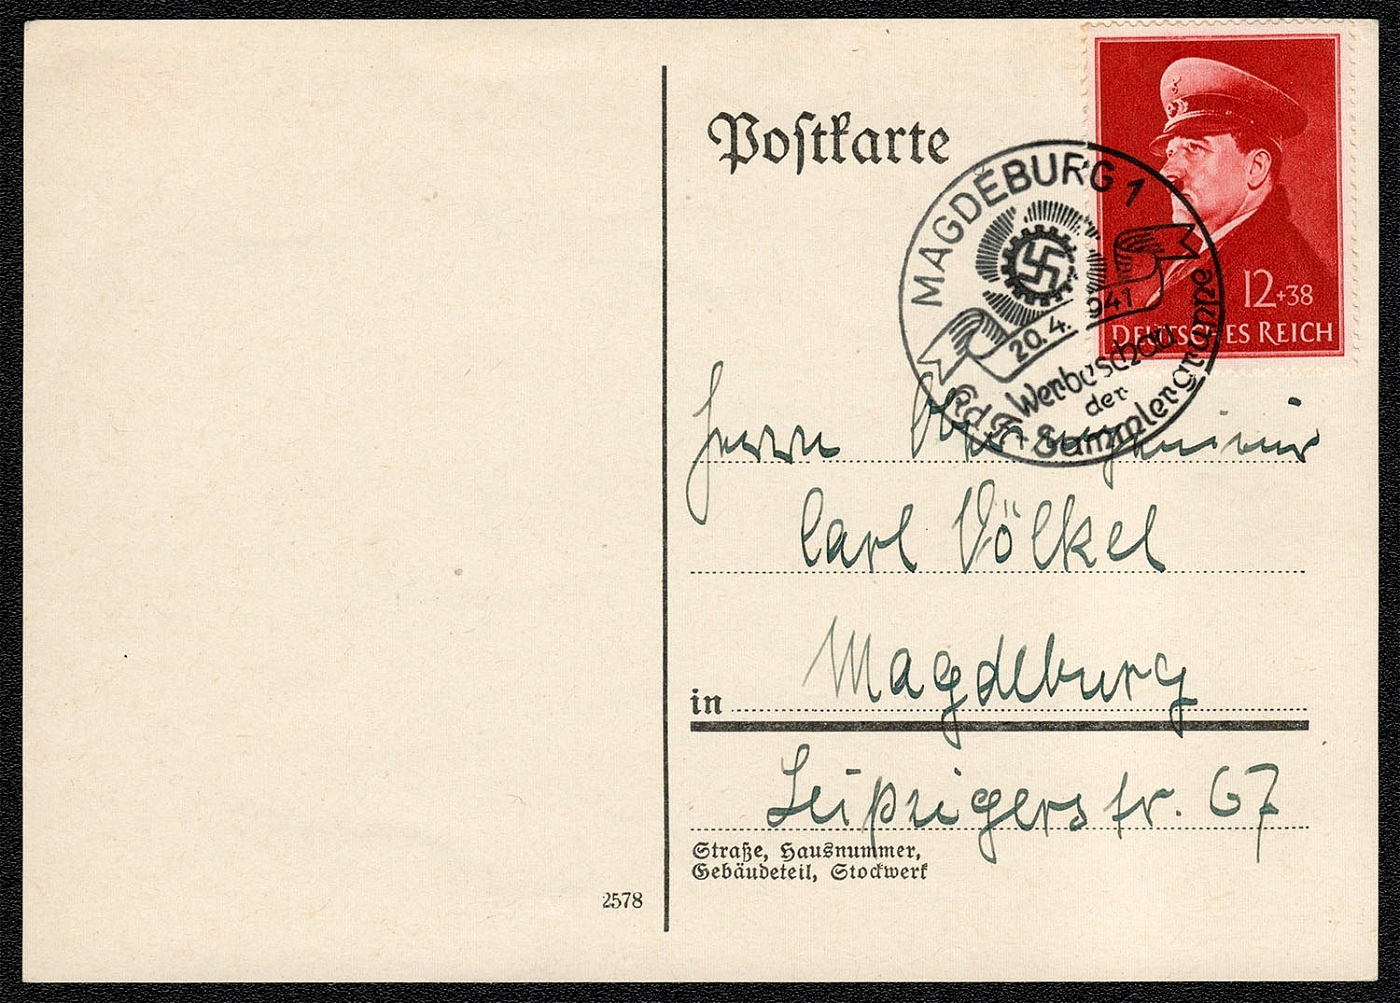 Postkarte
MAGDEBURG 1
20.4.1941
Werbeschau
der
KdF.-Sammlergruppe
12+38
DEUTSCHES REICH
Herrn Oberingenieur
Carl Völkel
in Magdeburg
Leipzigerstr. 67
Straße, Hausnummer,
Gebäudeteil, Stockwerk
2578